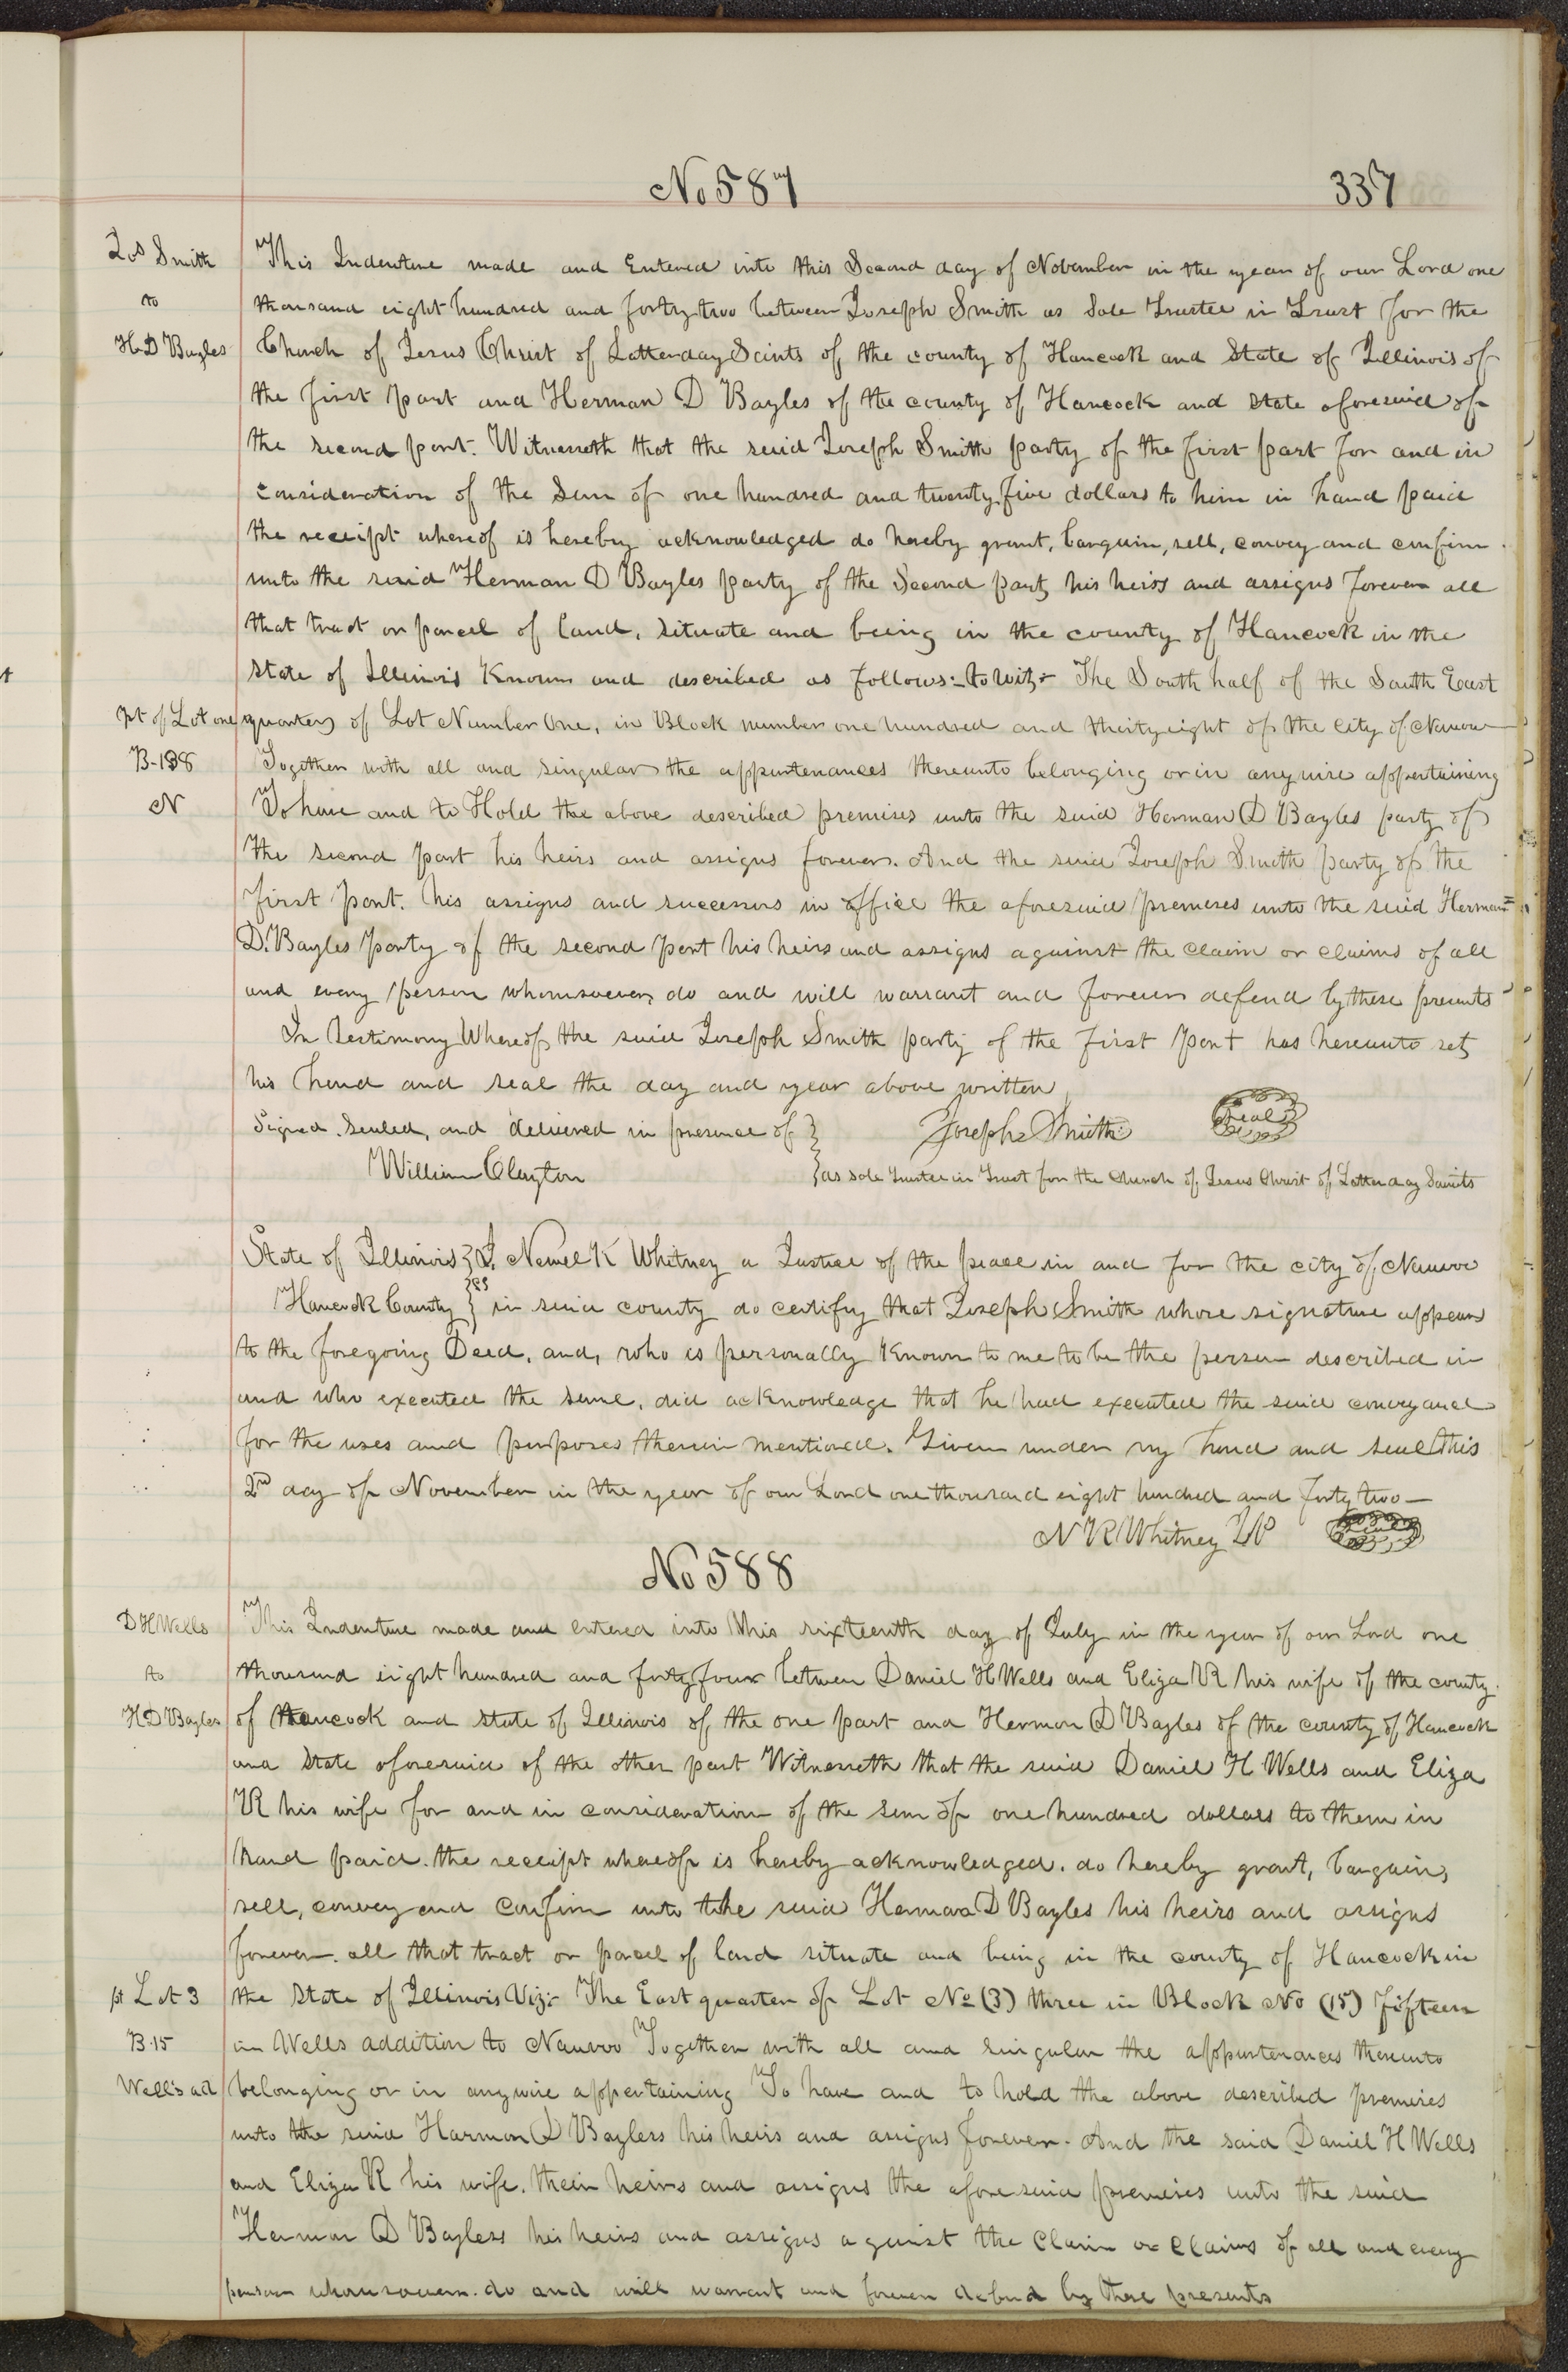 No 587
337
Jos Smith
to
H D Bayles
This Indenture made and Entered into this Second day of November in the year of our Lord one
thousand eight hundred and forty two between Joseph Smith as Sole Trustee in Trust for the
Church of Jesus Christ of Latterday Saints of the county of Hancock and State of Illinois of
the first part and Herman D Bayles of the county of Hancock and State aforesaid of
the second part. Witnesseth that the said Joseph Smith party of the first part for and in
consideration of the Sum of one hundred and twenty five dollars to him in hand paid
the receipt whereof is hereby acknowledged do hereby grant, bargain, sell, convey and confirm
unto the said Herman D Bayles party of the Second part, his heirs and assigns forever all
that tract or parcel of land, situate and being in the county of Hancock in the
State of Illinois Known and described as follows:- to wit:- The South half of the South East
pt of Lot one
quarter of Lot Number One, in Block number one hundred and thirty eight of the City of Nauvoo
B-138
Together with all and singular the appurtenances thereunto belonging or in anywise appertaining
N
To have and to Hold the above described premises unto the said Herman D Bayles party of
the second part his heirs and assigns forever. And the said Joseph Smith party of the
first part. his assigns and successors in office the aforesaid premises unto the said Herman=
D. Bayles party of the second part his heirs and assigns against the claim or claims of all
and every person whomsoever, do and will warrant and forever defend by these presents
In Testimony Whereof, the said Joseph Smith party of the first part has hereunto set
his hand and seal the day and year above written
Signed. Sealed, and delivered in presence of } Joseph Smith Seal
William Clayton } as sole trustee in Trust for the Church of Jesus Christ of Latter day Saints
State of Illinois } ss I, Newel K Whitney a Justice of the peace in and for the city of Nauvoo
Hancock County } in said county do certify that Joseph Smith whose signature appears
to the foregoing Deed, and, who is personally Known to me to be the person described in
and who executed the same, did acknowledge that he had executed the said conveyance
for the uses and purposes therein mentioned. Given under my hand and seal this
2nd day of November in the year of our Lord one thousand eight hundred and forty two—
N K Whitney J P
No 588
D H Wells
to
H D Bayles
This Indenture made and entered into this sixteenth day of July in the year of our Lord one
thousand eight hundred and forty four between Daniel H Wells and Eliza R his wife of the county
of Hancock and State of Illinois of the one part and Hermon D Bayles of the county of Hancock
and State aforesaid of the other part Witnesseth that the said Daniel H Wells and Eliza
R his wife for and in consideration of the sum of one hundred dollars to them in
hand paid. the receipt whereof is hereby acknowledged. do hereby grant, bargain,
sell, convey and Confirm unto the said Herman D Bayles his heirs and assigns
forever. all that tract or parcel of land situate and being in the county of Hancock in
pt Lot 3
the State of Illinois Viz:- The East quarter of Lot No (3) three in Block No (15) fifteen
B.15
in Wells addition to Nauvoo Together with all and singular the appurtenances thereunto
Well's ad
belonging or in anywise appertaining To have and to hold the above described premises
unto the said Harmon D Bayless his heirs and assigns forever. And the said Daniel H Wells
and Eliza R his wife. their heirs and assigns the aforesaid premises unto the said
Hermon D Bayless his heirs and assigns against the Claim or Claims of all and every
person whomsoever. do and will warrant and forever defend by these presents